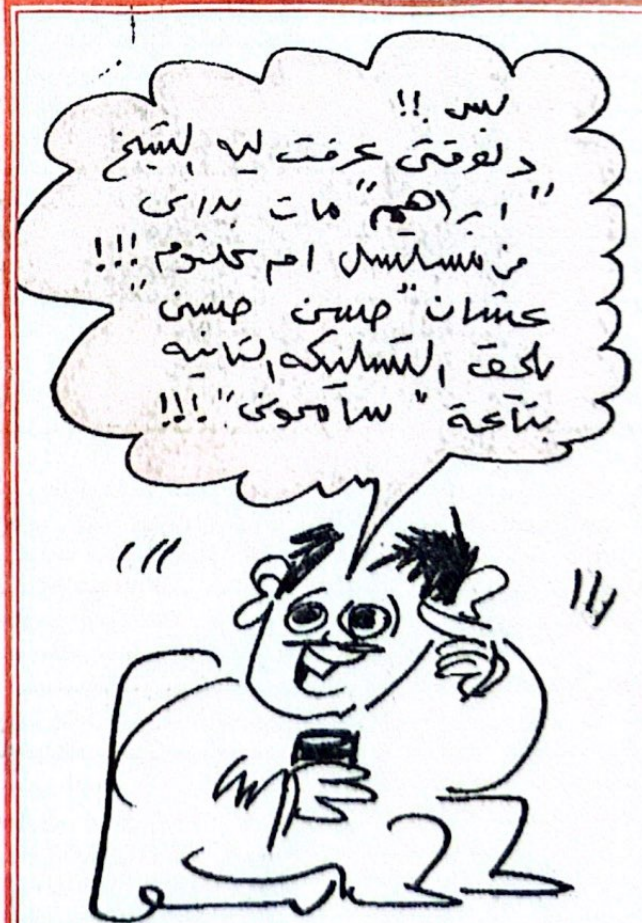 بس !!
دلوقتى عرفت ليه الشيخ
"ابراهيم" مات بدرى
من مسلسل ام كلثوم !!!
عشان "حسن حسنى"
يلحق التسليكه التانيه
بتاعة "سامحونى" !!!